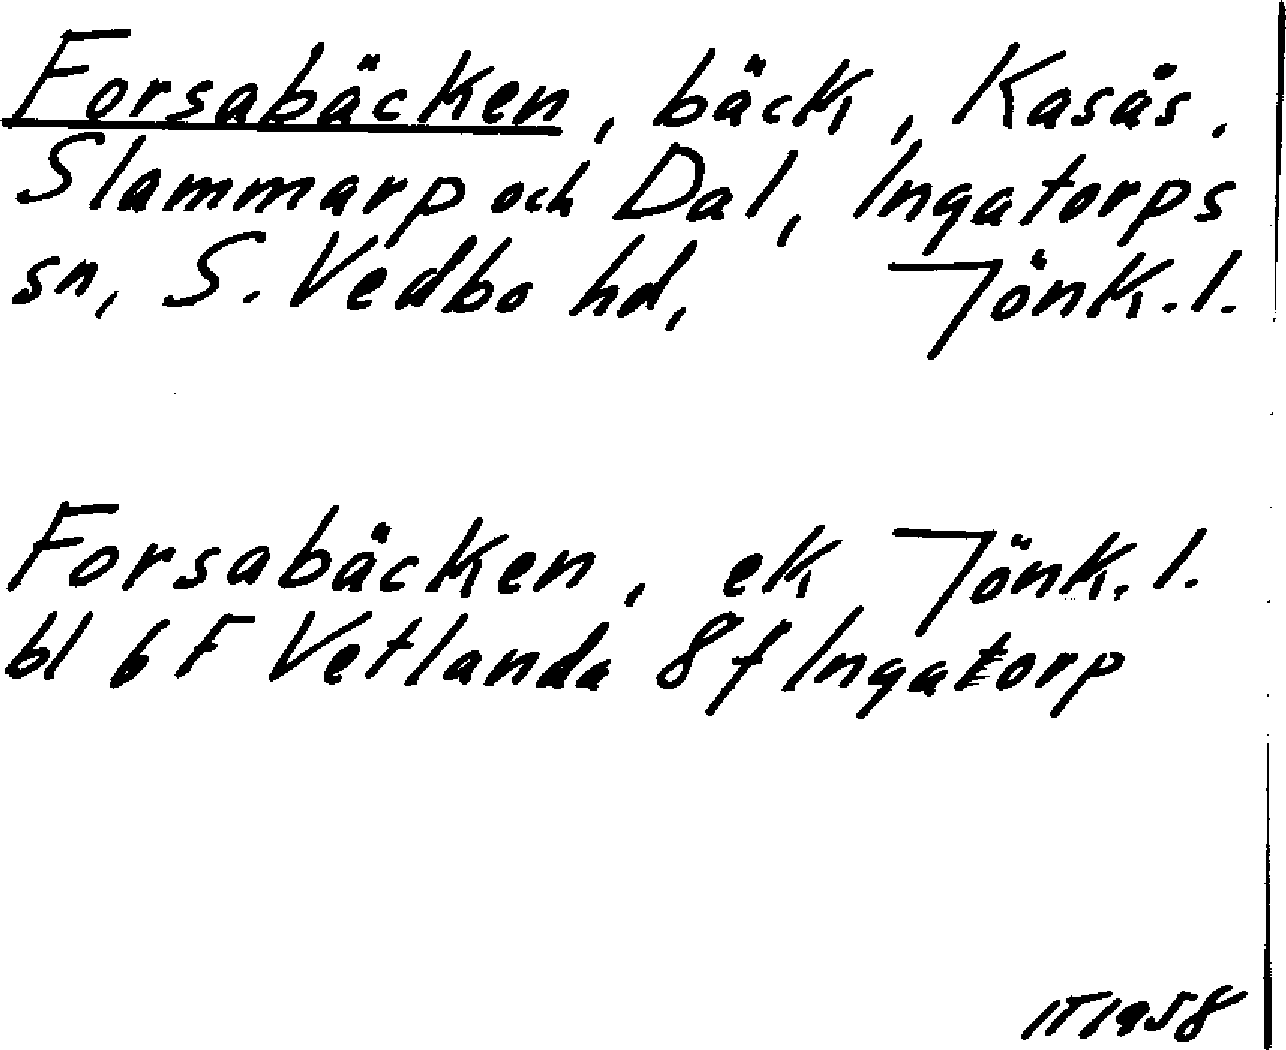 Forsabäcken, bäck, Kasås.
Slammarp och Dal, Ingatorps
sn, S. Vedbo hd, Jönk. l.
Forsabäcken, ek Jönk. l.
bl 6 F Vetlanda 8 f Ingatorp
IT 1958